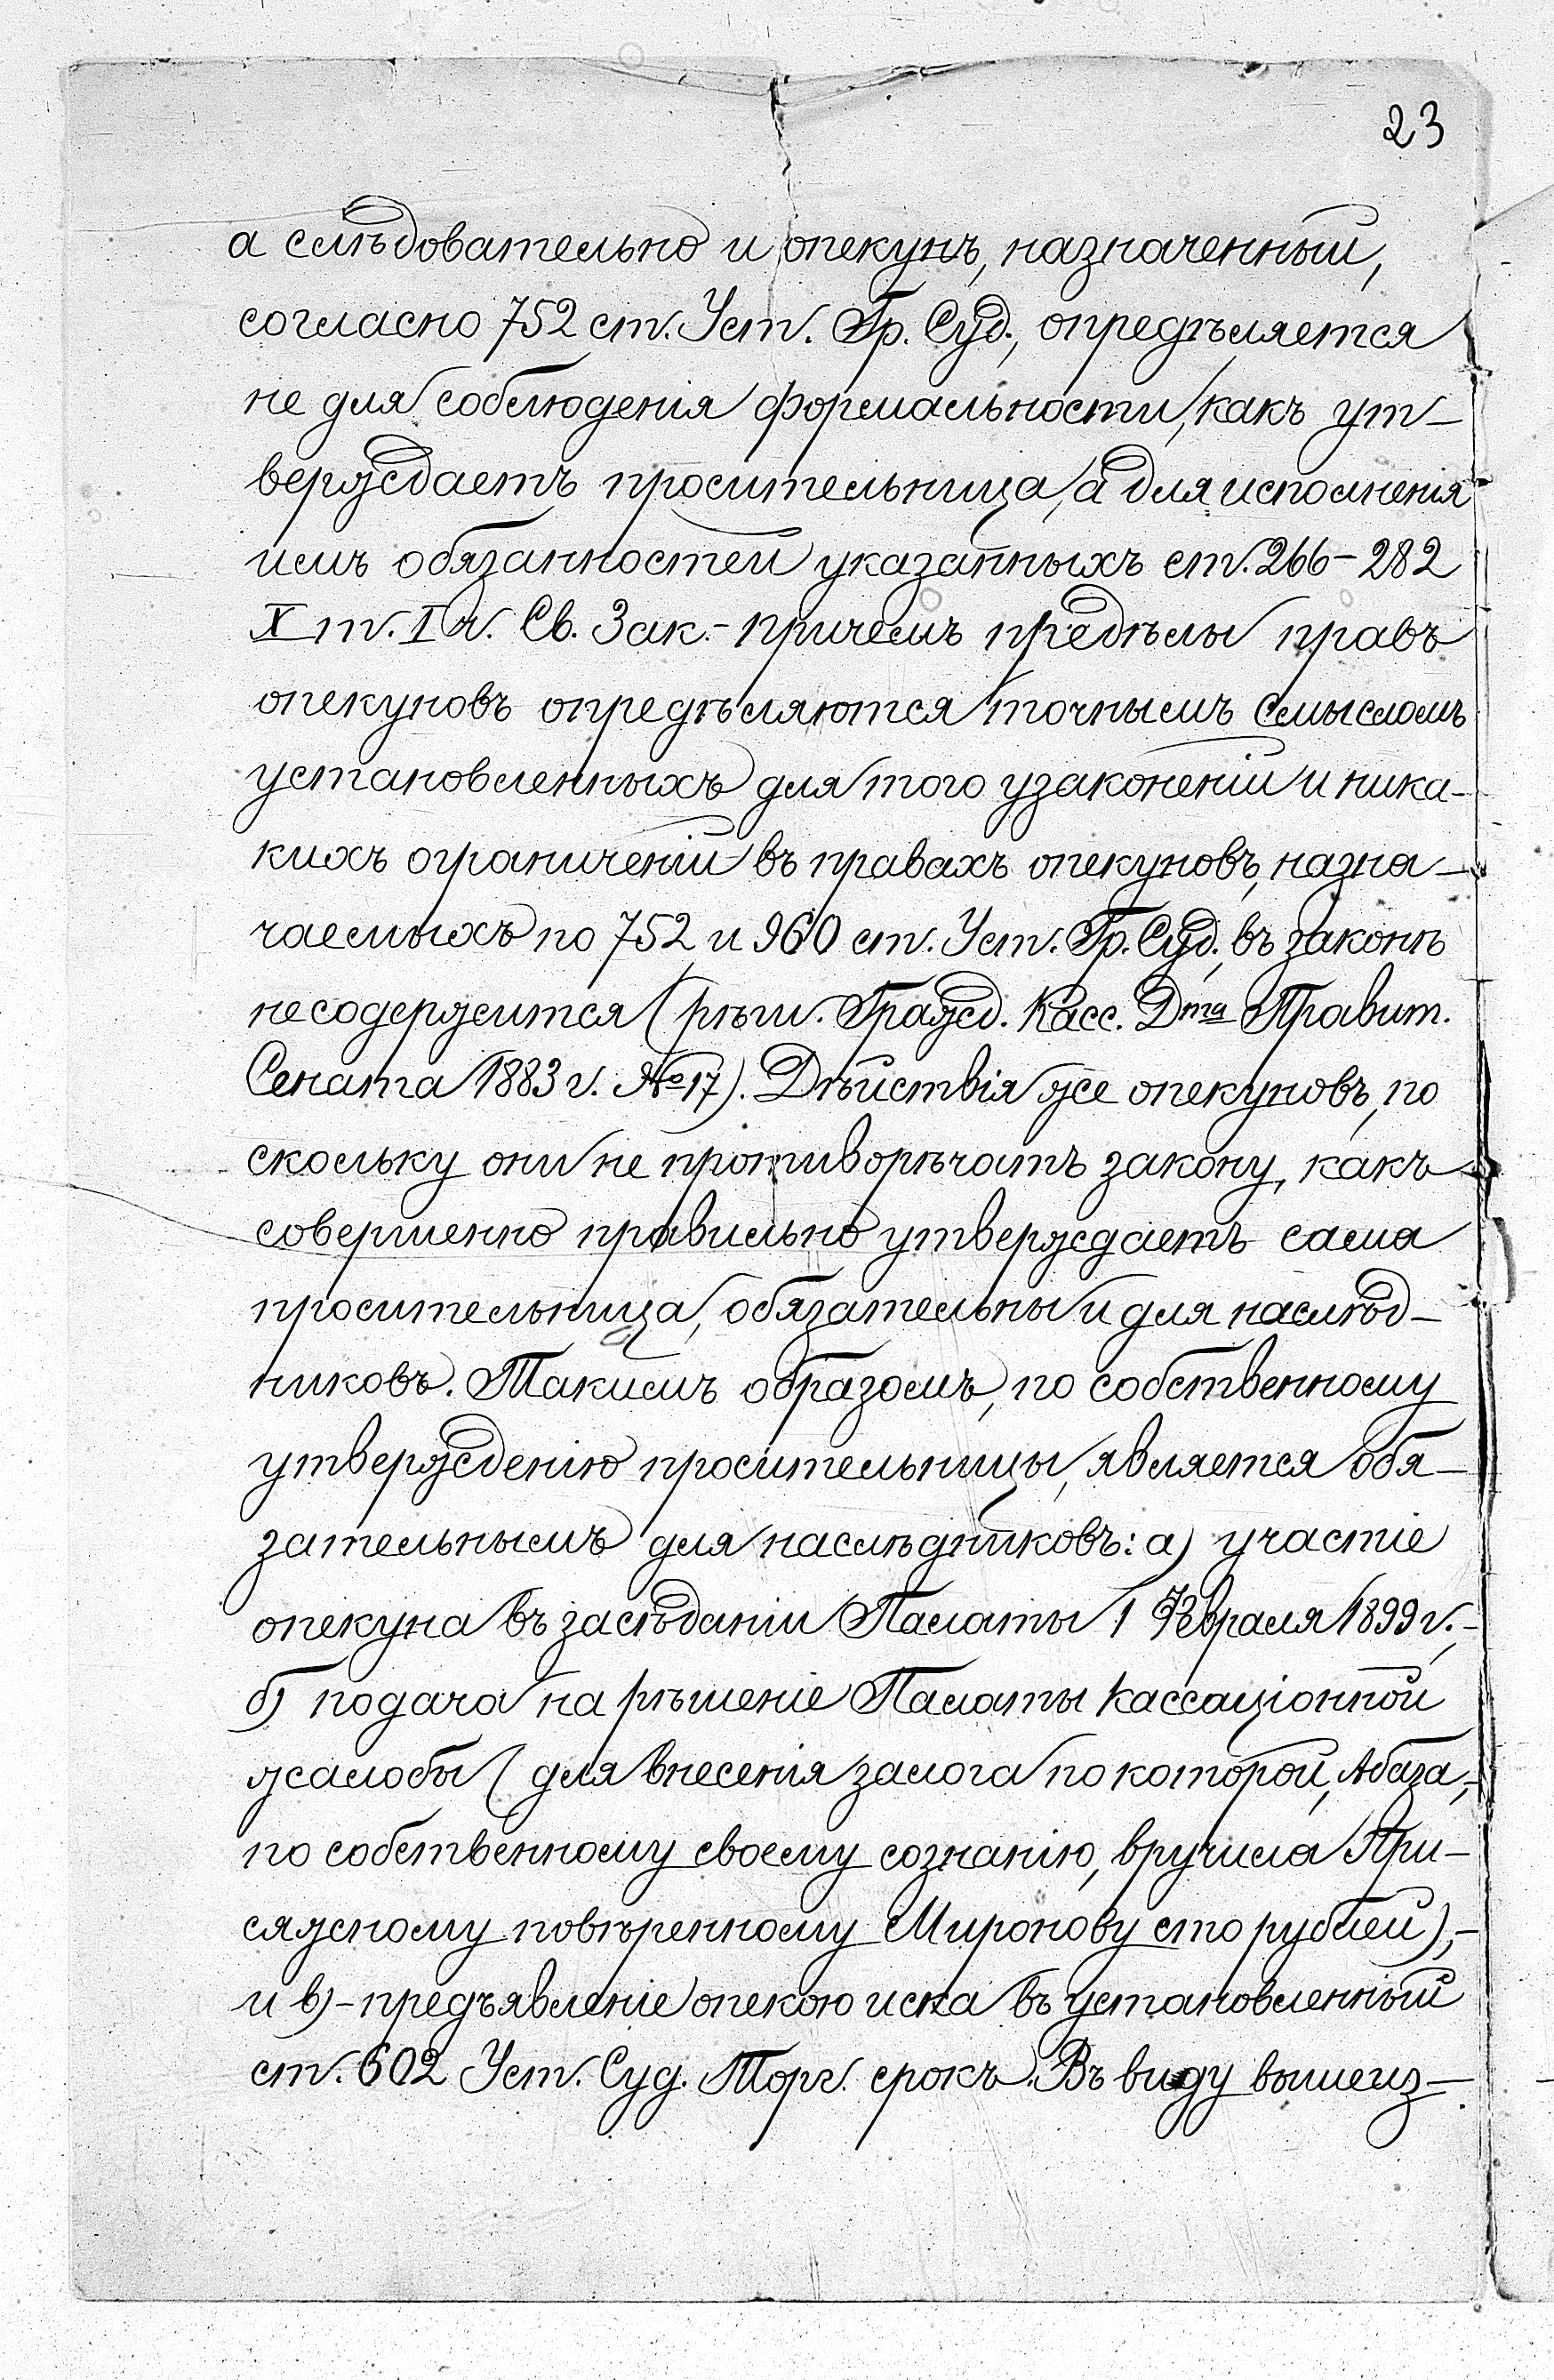 23
а слѣдовательно и опекунъ, назначенный,
согласно 752 ст. Уст. Гр. Суд., опредѣляется
не для соблюденія формальности, какъ ут-
верждаетъ просительница, а для исполненія
имъ обязанностей указанныхъ ст. 266-282
X т. I ч. Св. Зак.- причемъ предѣлы правъ
опекуновъ опредѣляются точнымъ смысломъ
установленныхъ для того узаконеній и ника-
кихъ ограниченій въ правахъ опекуновъ, назна-
чаемыхъ по 752 и 960 ст. Уст. Гр. Суд., въ законѣ
не содержится (рѣш. Гражд. Касс. Дта Правит.
Сената 1883 г. № 17). Дѣйствія же опекуновъ, по
скольку они не противорѣчатъ закону, какъ
совершенно правильно утверждаетъ сама
просительница, обязательны и для наслѣд-
никовъ. Такимъ образомъ, по собственному
утвержденію просительницы, является обя-
зательнымъ для наслѣдниковъ: а) участіе
опекуна въ засѣданіи Палаты 1 Февраля 1899 г.,-
б) подача на рѣшеніе Палаты кассаціонной
жалобы (для внесенія залога по которой, Абаза,-
по собственному своему сознанію, вручила При-
сяжному повѣренному Миронову сто рублей),-
и в)- предъявленіе опекою иска въ установленный
ст. 602 Уст. Суд. Торг. срокъ. Въ виду вышеиз-